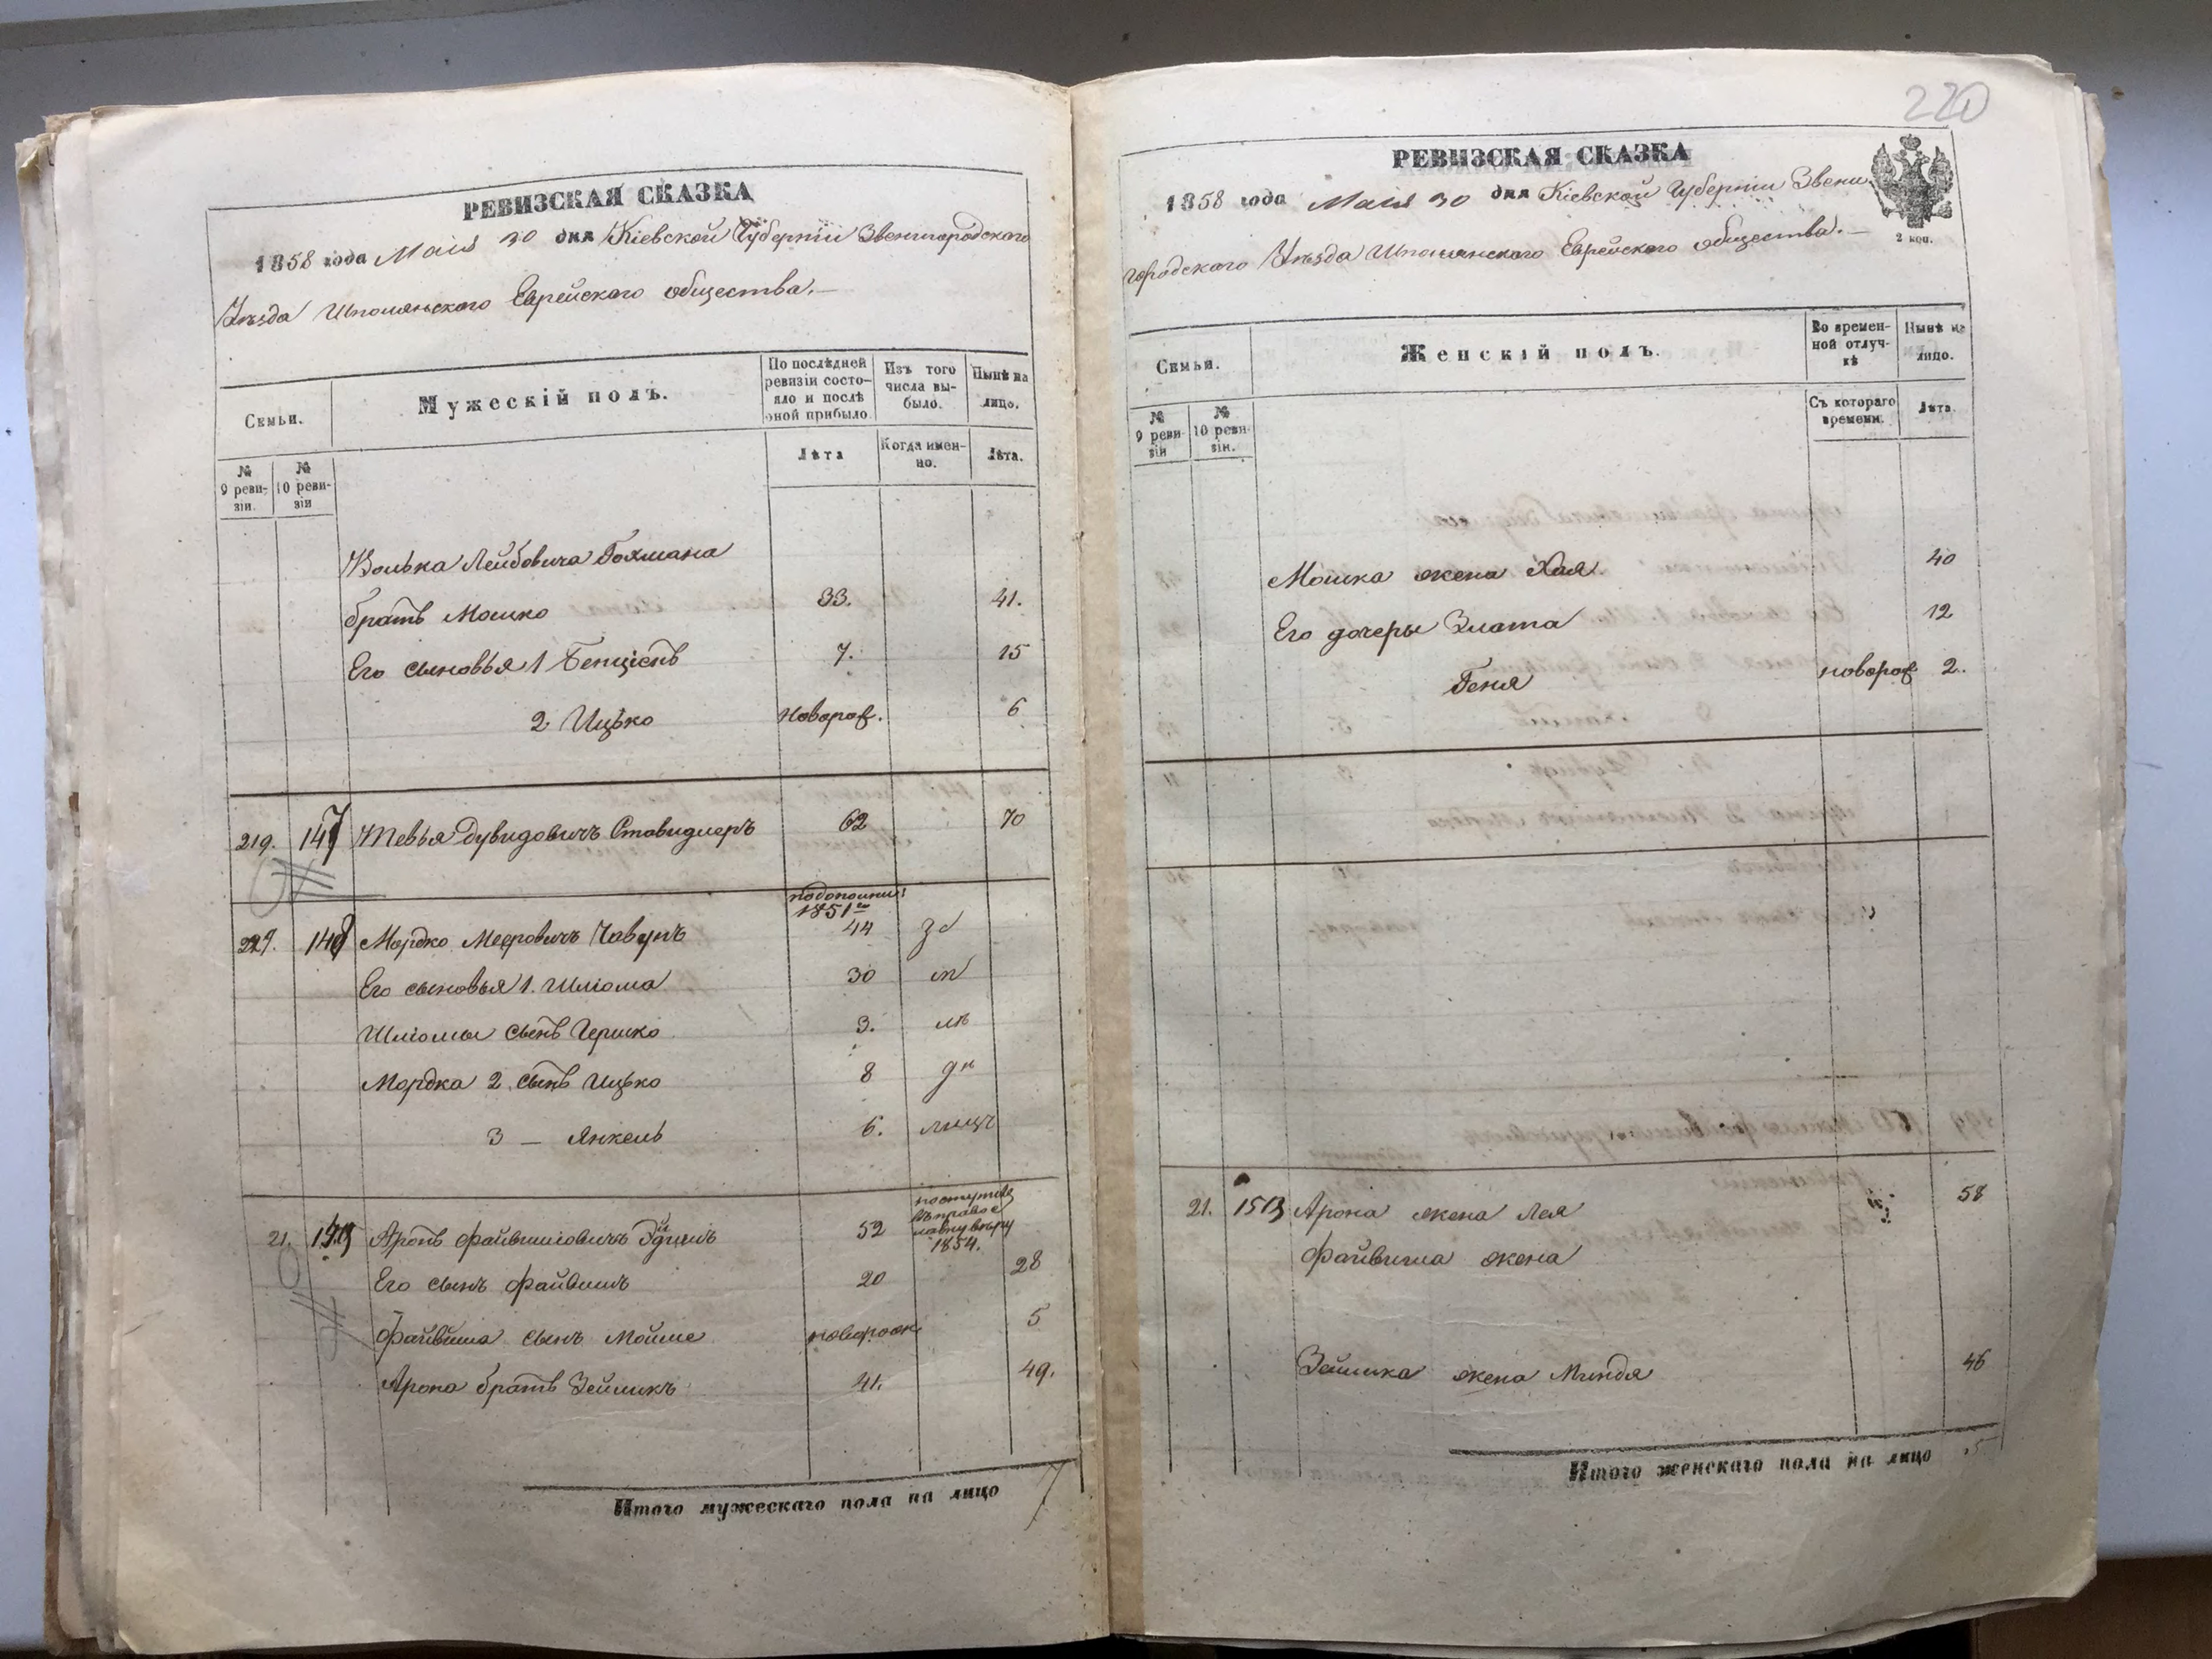 220
РЕВИЗСКАЯ СКАЗКА
1858 года Маія 30 дня Кіевской Губерніи Звенигородского
Уѣзда Шполянского Еврейского общества.
Семьи.
Мужескій полъ.
По послѣдней ревизіи состояло и послѣ оной прибыло.
Изъ того числа выбыло.
Нынѣ на лицо.
№ 9 ревизіи.
№ 10 ревизіи
Лѣта
Когда именно.
Лѣта.
Волька Лейбовича Гохмана
братъ Мошко 33. 41.
Его сыновья 1 Бенціонъ 7. 15
2 Ицько новорож. 6
219. 147 Тевья Дувидовичъ Ставидлеръ 62 70
1851
148 Мордко Мееровичъ Чавунъ 44
Его сыновья 1. Шліома 30
Шліомы сынъ Гершко 3.
Мордка 2. сынъ Ицько 8
3 — Янкель 6.
21. Аронъ Файвишіовичъ 52 1854.
Его сынъ Файвишъ 20 28
Файвиша сынъ Мойше новорож 5
Арона братъ Зейликъ 41. 49.
Итого мужескаго пола на лицо 7
РЕВИЗСКАЯ СКАЗКА
1858 года Маія 30 дня Кіевской Губерніи Звени
городского Уѣзда Шполянского Еврейского общества.
2 коп.
Семьи.
Женскій полъ.
Во временной отлучкѣ
Нынѣ на лицо.
№ 9 ревизіи
№ 10 ревизіи.
Съ котораго времени.
Лѣта.
Мошка жена Хая 40
Его дочеры Злата 12
Геня новорож 2.
21. Арона жена Лея 58
Файвиша жена
Зейлика жена Миндя 46
Итого женскаго пола на лицо 5